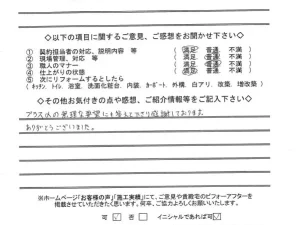 ◇以下の項目に関するご意見、ご感想をお聞かせ下さい◇
① 契約担当者の対応、説明内容 等 ( 満足 普通 不満 )
② 現場管理、対応 等 ( 満足 普通 不満 )
③ 職人のマナー ( 満足 普通 不満 )
④ 仕上がりの状態 ( 満足 普通 不満 )
⑤ 次にリフォームするとしたら
( キッチン、トイレ、浴室、洗面化粧台、内装、カーポート、外構、白アリ、改築、増改築 )
◇その他お気付きの点や感想、ご紹介情報等をご記入下さい◇
プラスαの無理な要望にも答えて下さり感謝しております
ありがとうございました。
※ホームページ「お客様の声」「施工実績」にて、ご意見や貴殿宅のビフォーアフターを
掲載させていただきたく思います。何卒、ご協力よろしくお願いいたします。
可 ☑ 否 □ イニシャルであれば可 ☑